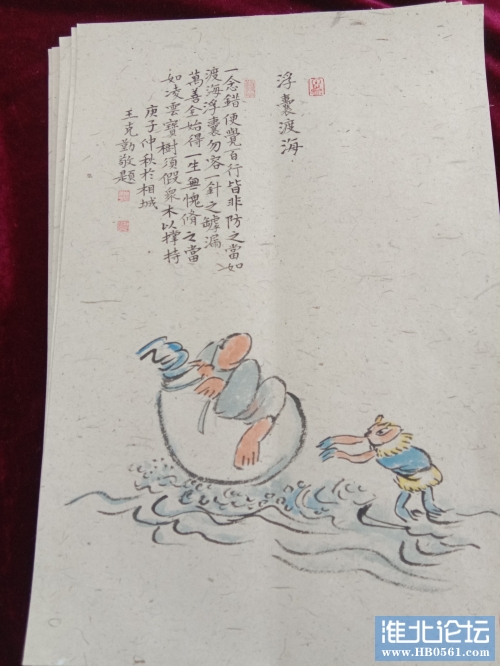 浮囊渡海
一念錯便覺百行皆非防之當如
渡海浮囊勿容一針之罅漏
萬善全始得一生無愧脩之當
如凌雲寶樹須假衆木以撑持
庚子仲秋於相城
王克勤敬題
淮北论坛
www.HB0561.com